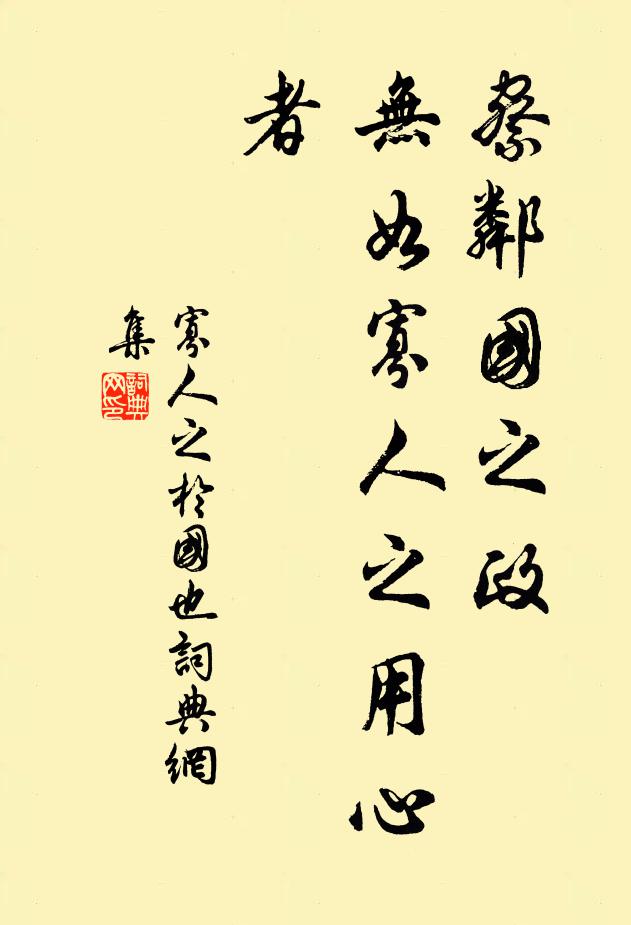 察鄰國之政
無如寡人之用心
者
寡人之於國也詞典網
集
詞典
网印